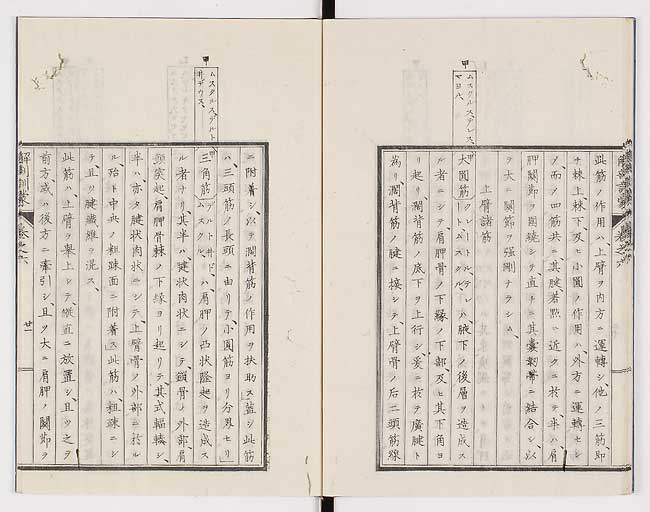 此筋ノ作用ハ、上臂ヲ内方ニ運轉シ、他ノ三筋即
チ棘上棘下及ヒ小圓ノ作用ハ、外方ニ運轉セシ
ム、而ノ四筋共ニ、其腱着點ニ近クニ於テ、半ハ肩
胛關節ヲ圍繞シテ、直ドニ其囊韌帶ニ結合シ、以
テ大ニ關節ヲ强剛ナラシム、
上臂諸筋
甲
ムスクルス、テレス、
マヨル、
大圓筋
ハ腋下ノ後層ヲ造成ス
ル者ニシテ、肩胛骨ノ下緣ノ下部及ヒ其下角ヨ
リ起リ、濶背筋ノ底下ヲ上行シ、爰ニ於テ廣腱ト
爲リ、濶背筋ノ腱ニ接シテ、上臂骨ノ后二頭筋線
ニ附着シ、以テ濶背筋ノ作用ヲ扶助ス、蓋シ此筋
ハ、三頭筋ノ長頭ニ由リテ、小圓筋ヨリ分界セリ、
甲
ムスクルス、デルトイ
デウス、
三角筋
ハ、肩胛ノ凸狀隆起ヲ造成ス
ル者ナリ、其半ハ腱狀肉狀ニシテ、鎖骨ノ外部、肩
頭突起、肩胛棘ノ下緣ヨリ起リテ、其式輻輳シ、
半ハ亦タ腱狀肉狀ニシテ、上臂骨ノ外部ニ於ル
ル、殆ト中央ノ粗踈面ニ附着ス、此筋ハ、粗踈ニシ
テ、且ツ腱纖維ヲ混ス、
此筋ハ、上臂ヲ擧上シテ、縱直ニ放置シ、且ツ之ヲ
前方或ハ後方ニ牽引シ、且ツ大ニ肩胛ノ關節ヲ
解剖訓蒙
卷之六
廿一